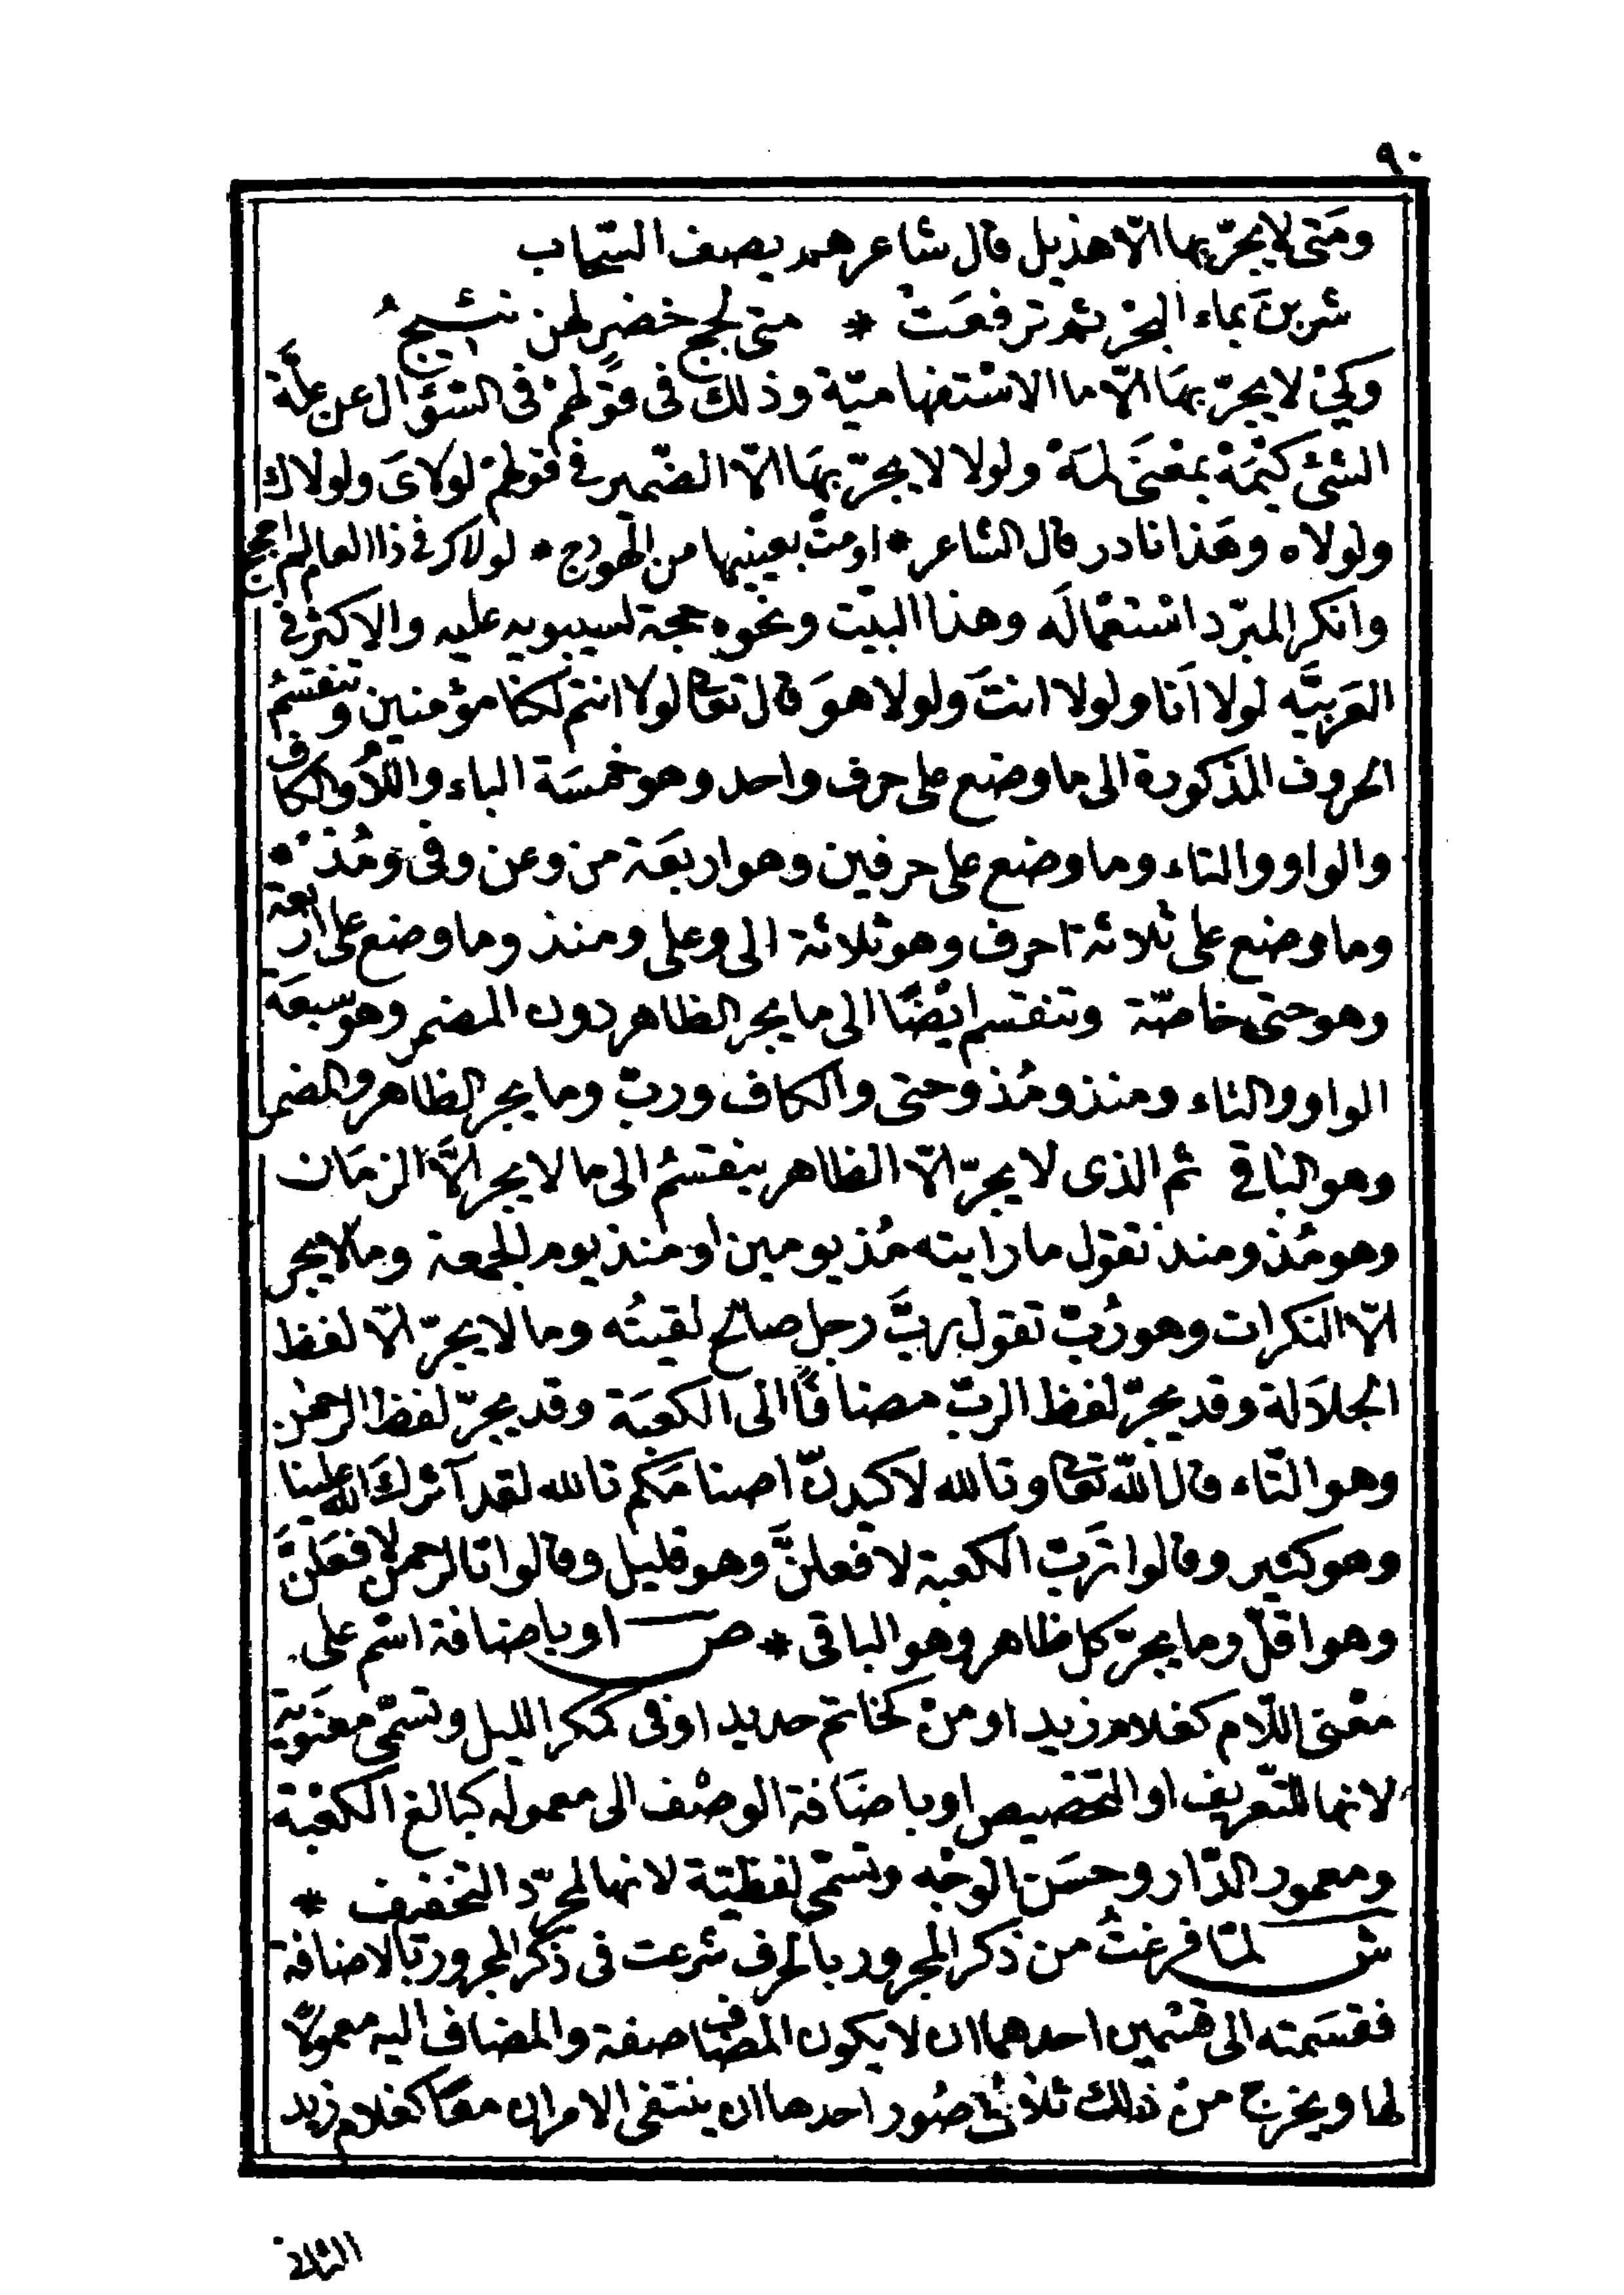 ٩٠
ومَتى لا يجرّ بها الّا هذيل قال شاعرهم يصف السّحاب
شربنَ بماء البحر ثم ترفعَتْ * متى لجج خضرٍ لهن نئيجُ
وكيْ لا يجرّ بهَا الّا ما الاستفهاميّة وذلك فى قوْلهمْ فى السّؤال عن علّة
الشئ كَيْمَهْ بمعْنَى لمَهْ ولولا لا يجرّ بهَا الّا الضّمير فى قولهمْ لولاىَ ولولاك
ولولاه وهَذا نادر قال الشاعر * اومتْ بعينيها من الهودج * لولاك فى ذا العام لم احجج
وانكر المبرّد اسْتعْمالَه وهذا البيْت ونحوه حجة لسيبويه عليه والاكثر فى
العَربيَّه لولا اَنا ولولا انتَ ولولا هوَ قال تعالى لولا انتم لكنا مؤمنين وتنقسمُ
الحروف المذكورة الى ما وضع على حرف واحد وهو خمسَة الباء واللام والكاف
والواو والتاء وما وضع على حرفين وهو اربعَة من وعن وفى ومُذْ *
وما وضع على ثلاثة احرف وهو ثلاثة الى وعلى ومنذ وما وضع على اربعة
وهو حتى خاصّة وتنقسم ايْضًا الى ما يجر الظاهر دون المضمر وهو سبعَة
الواو والتاء ومنذ ومُذ وحتى والكاف وربّ وما يجر الظاهر والمضمر
وهو الباقى ثم الذى لا يجرّ الّا الظاهر ينقسمُ الى ما لا يجر الَّا الزمَان
وهو مُذ ومنذ تقول ما رايته مُذ يومين او منذ يوم الجمعة وما لا يجر
الّا النكرات وهو رُبّ تقول ربَّ رجل صالح لقيتُه وما لا يجرّ الّا لفظ
الجلاَلة وقد يجرّ لفظ الربّ مضافًا الى الكعبَة وقد يجرّ لفظ الرحمٰن
وهو التّاء قال اللّه تعالى وتالله لاكيدنّ اصنامَكم تالله لقد آثرك الله علينا
وهو كثير وقالوا تَربّ الكعبة لافعلنَّ وهو قليل وقالوا تالرحمن لافعَلنَّ
وهو اقلّ وما يجرّ كل ظاهر وهو الباقى * ص او باضافة اسْم على
معْنى اللّام كغلام زيد او منْ كخاتم حديد او فى كمكر الليل وتسمّى معنَويّة
لانها للتّعريف او التّخصيص او باضَافة الوصْف الى معموله كبالغ الكعْبَة
ومعمور الدّار وحسَن الوجْه وتسمّى لفظيّة لانها لمجرّد التخفيف *
ش لمّا فرغتُ من ذكر المجرور بالحرف شرعت فى ذكْر المجرور بالاضافة
فقسَمته الى قسْمين احدهما ان لا يكون المضاف صفة والمضاف اليه معمولًا
لها ويخرج منْ ذلك ثلاث صُور احدها ان ينتفى الامران معًا كغلام زيد